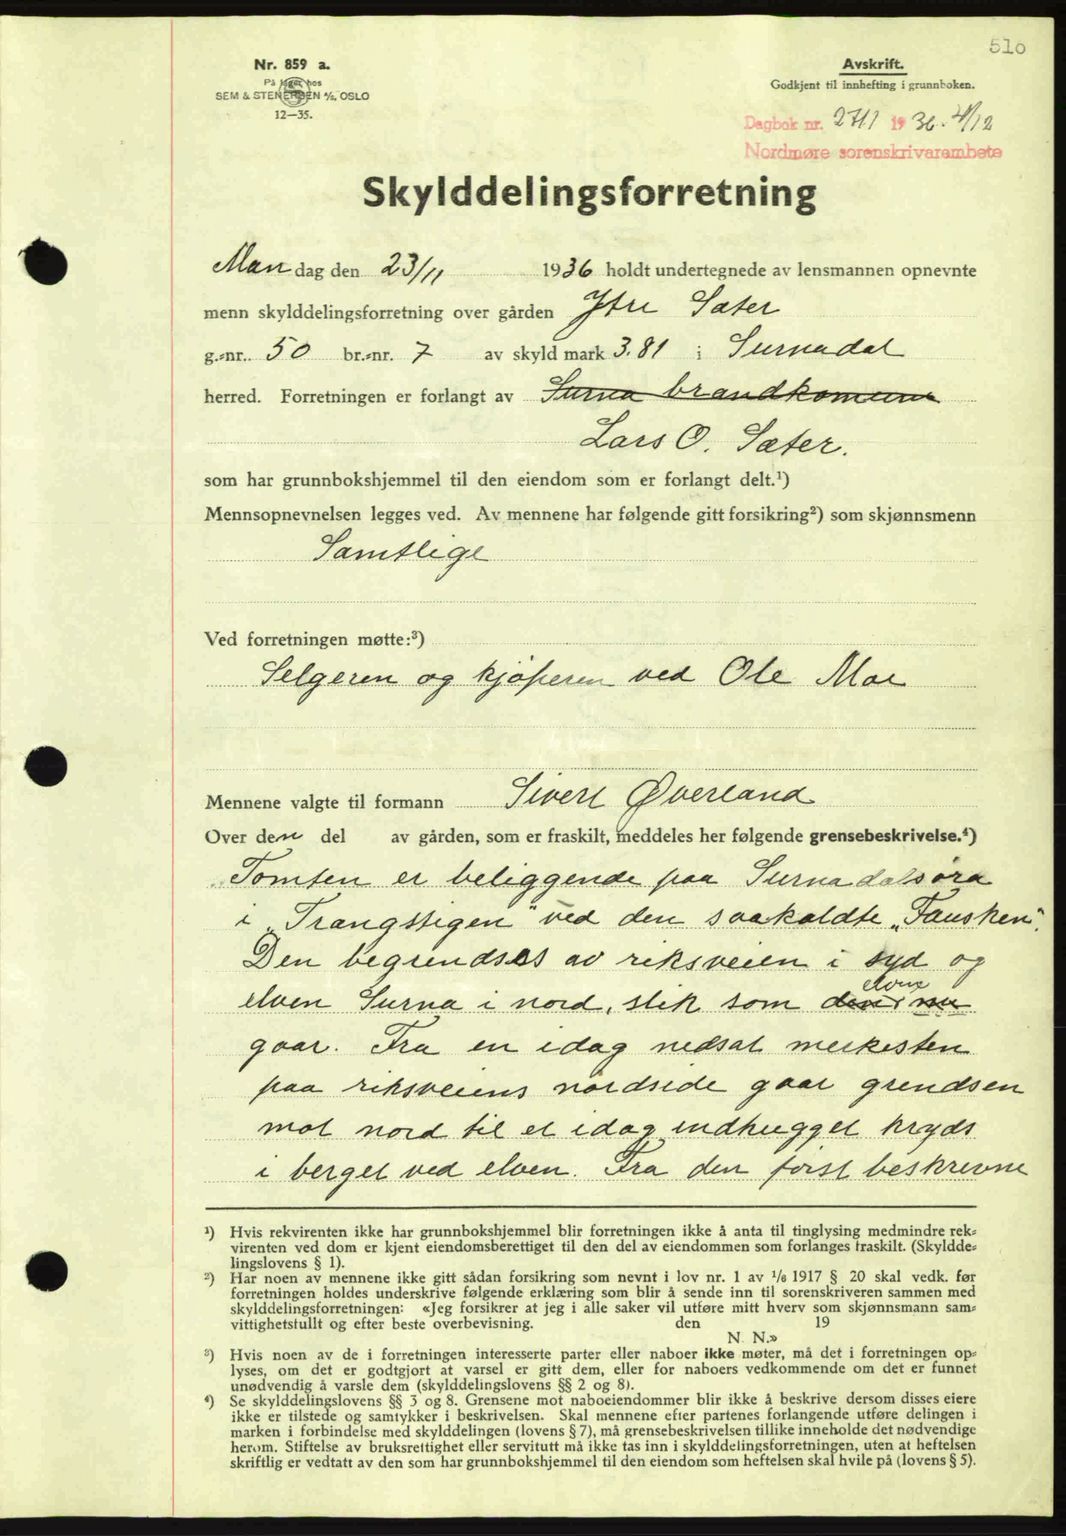 510
Nr. 859 a.
På lager hos
SEM & STENERSEN A/S, OSLO
12—35.
Avskrift.
Godkjent til innhefting i grunnboken.
Dagbok nr. 2711 1936. 4/12
Nordmøre sorenskrivarembete
Skylddelingsforretning
Mandag den 23/11 1936 holdt undertegnede av lensmannen opnevnte
menn skylddelingsforretning over gården Ytre Sæter
g.=nr. 50 br.=nr. 7 av skyld mark 3.81 i Surnadal
herred. Forretningen er forlangt av Surna brandkomune
Lars O. Sæter.
som har grunnbokshjemmel til den eiendom som er forlangt delt.¹)
Mennsopnevnelsen legges ved. Av mennene har følgende gitt forsikring²) som skjønnsmenn
Samtlige
Ved forretningen møtte:³)
Selgeren og kjøperen ved Ole Moe
Mennene valgte til formann Sivert Øverland
Over den del av gården, som er fraskilt, meddeles her følgende grensebeskrivelse.⁴)
Tomten er beliggende paa Surnadalsøra
i „Trangstigen" ved den saakaldte „Fausken".
Den begrendses av riksveien i syd og
elven Surna i nord, slik som den nu elven
gaar. Fra en idag nedsat merkesten
paa riksveiens nordside gaar grendsen
mot nord til et idag indhugget kryds
i berget ved elven. Fra den først beskrevne
¹) Hvis rekvirenten ikke har grunnbokshjemmel blir forretningen ikke å anta til tinglysing medmindre rek=
virenten ved dom er kjent eiendomsberettiget til den del av eiendommen som forlanges fraskilt. (Skyldde=
lingslovens § 1).
²) Har noen av mennene ikke gitt sådan forsikring som nevnt i lov nr. 1 av 1/6 1917 § 20 skal vedk. før
forretningen holdes underskrive følgende erklæring som blir å sende inn til sorenskriveren sammen med
skylddelingsforretningen: «Jeg forsikrer at jeg i alle saker vil utføre mitt hverv som skjønnsmann sam=
vittighetsfullt og efter beste overbevisning. den 19
N. N.»
³) Hvis noen av de i forretningen interesserte parter eller naboer ikke møter, må det i forretningen op=
lyses, om det er godtgjort at varsel er gitt dem, eller for naboers vedkommende om det er funnet
unødvendig å varsle dem (skylddelingslovens §§ 2 og 8).
⁴) Se skylddelingslovens §§ 3 og 8. Grensene mot naboeiendommer blir ikke å beskrive dersom disses eiere
ikke er tilstede og samtykker i beskrivelsen. Skal mennene efter partenes forlangende utføre delingen i
marken i forbindelse med skylddelingen (lovens § 7), må grensebeskrivelsen tillike inneholde det nødvendige
herom. Stiftelse av bruksrettighet eller servitutt må ikke tas inn i skylddelingsforretningen, uten at heftelsen
skriftlig er vedtatt av den som har grunnbokshjemmel til den eiendom som heftelsen skal hvile på (lovens § 5).